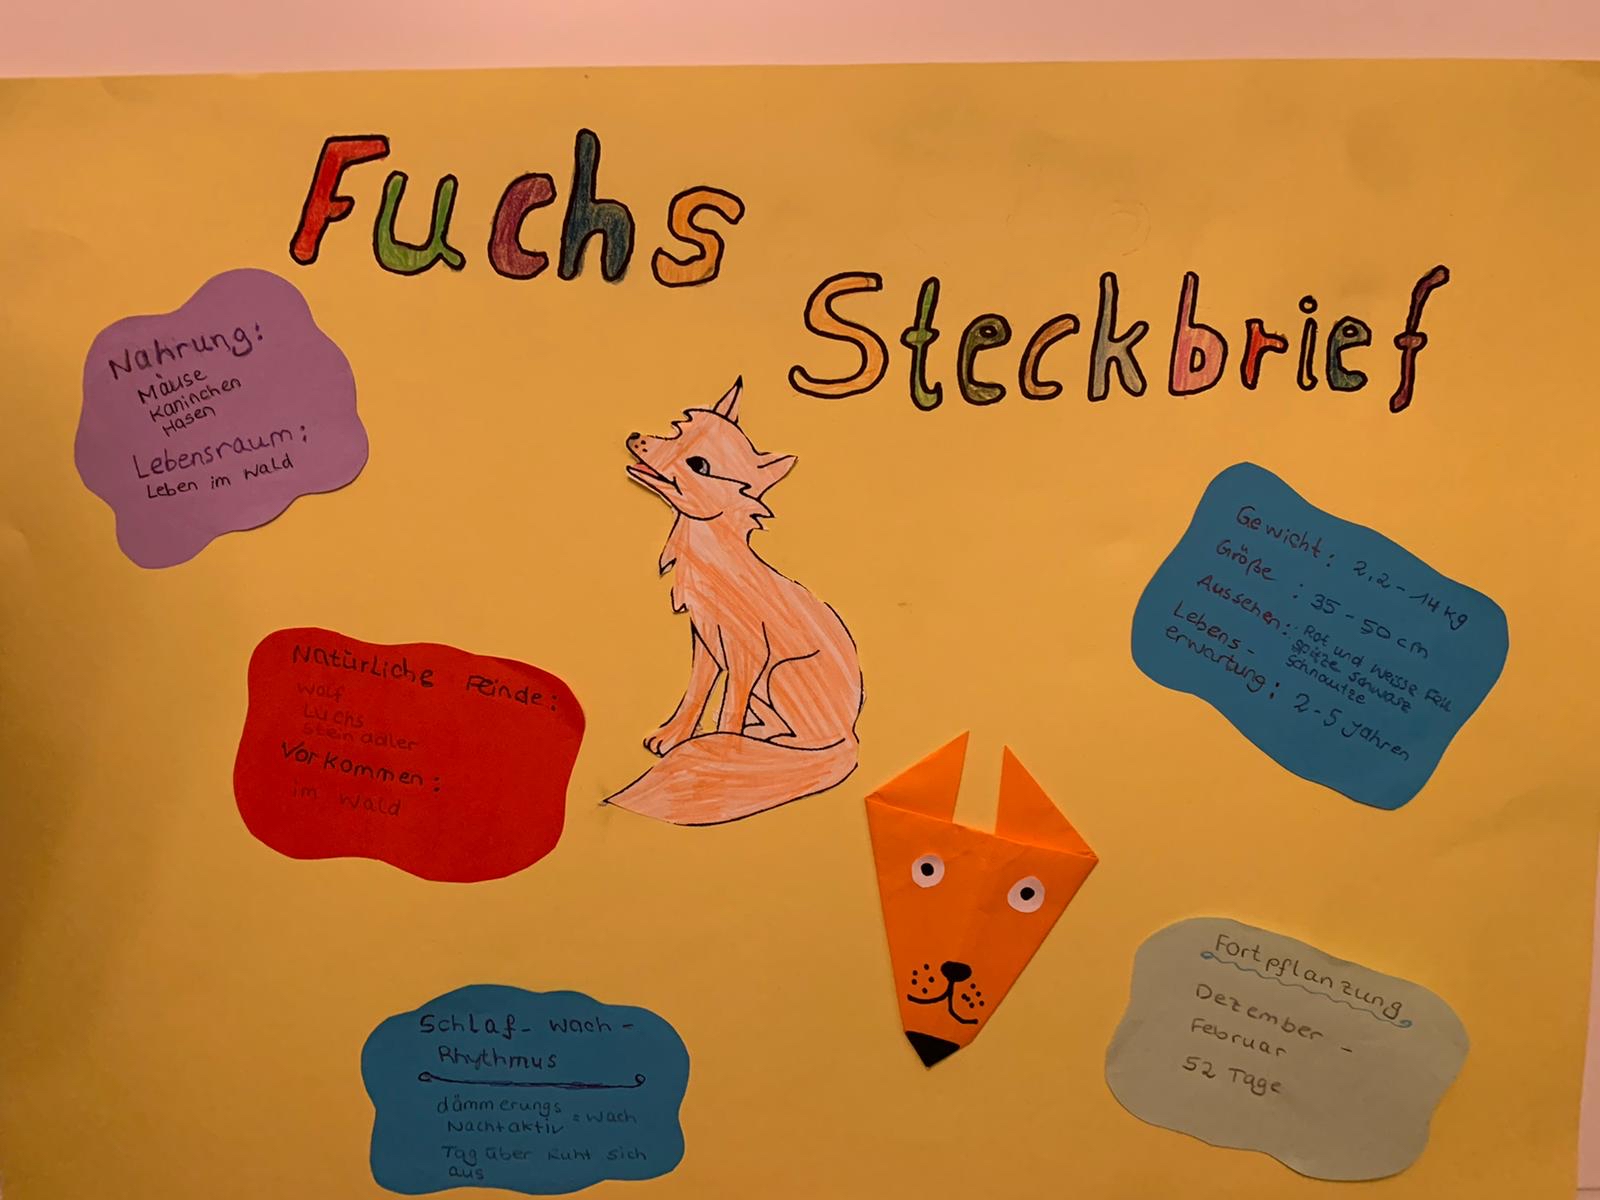 Fuchs
Steckbrief
Nahrung:
Mäuse
Kaninchen
Hasen
Lebensraum:
Leben im Wald
Natürliche Feinde:
Wolf
Luchs
Steinadler
Vorkommen:
im Wald
Schlaf-wach-
Rhythmus
dämmerungs
Nachtaktiv = wach
Tag über Ruht sich
aus
Gewicht: 2,2-14kg
Größe : 35-50cm
Aussehen: Rot und weisse Fell
spitze schwarz
schnautze
Lebens-
erwartung: 2-5 Jahren
Fortpflanzung
Dezember -
Februar
52 Tage